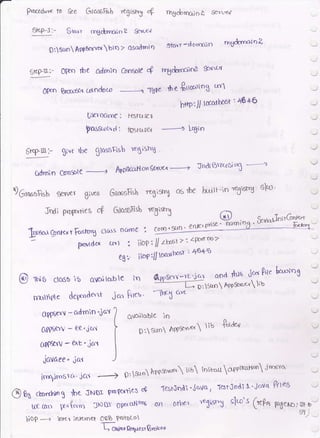 Procedure to see GlassFish registry of mydomain2 server
Step-I:- Start mydomain2 server
D:\Sun\AppServer\bin> asadmin start-domain mydomain2
Step-II:- Open the admin console of mydomain2 server
Open Browser window → Type the following url
http://localhost:4646
username: testuser
password: testuser → login
Step-III:- give the glassfish registry
admin console → Application Server → Jndi Browsing →
GlassFish server gives GlassFish registry as the built-in registry s/w.
Jndi properties of GlassFish registry
Initial Context Factory class name: com.sun.enterprise.naming.SerialInitContext
Factory
provider url: iiop://<host>:<port no>
eg: iiop://localhost:4646
This class is available in appserv-rt.jar and this jar file having
D:\Sun\AppServer\lib
multiple dependent jar files. They are
appserv-admin.jar
appserv-ee.jar
appserv-ext.jar
javaee.jar
available in
D:\Sun\AppServer\lib folder
imqjmsra.jar → D:\Sun\AppServer\lib\install\applications\jmsra
By changing the JNDI properties of TestJndi.java, TestJndi1.java files
we can perform JNDI operations on other registry s/w's (Refer page no:
iiop → inter internet ORB Protocol
Object Request Broker